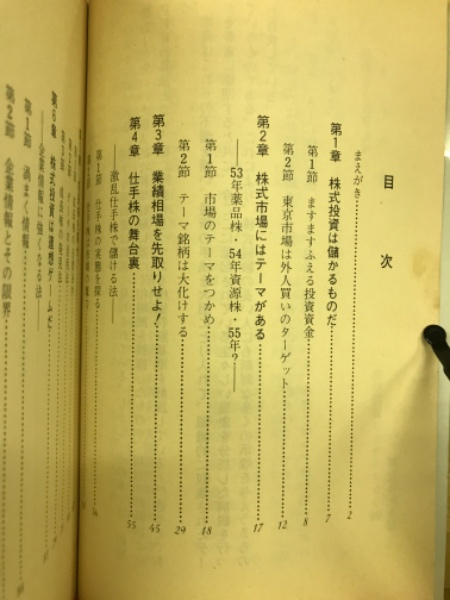 目次
まえがき……2
第1章 株式投資は儲かるものだ……7
第1節 ますますふえる投資資金……8
第2節 東京市場は外人買いのターゲット……12
第2章 株式市場にはテーマがある……17
——53年薬品株・54年資源株・55年?——
第1節 市場のテーマをつかめ……18
第2節 テーマ銘柄は大化けする……29
第3章 業績相場を先取りせよ!……45
第4章 仕手株の舞台裏……55
——激乱仕手株で儲ける法——
第1節 仕手株の実態を探る……56
第6章 株式投資は連想ゲームだ
——企業情報に強くなる法——
第1節 渦まく情報
第2節 企業情報とその限界